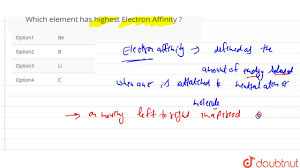 Which element has highest Electron Affinity ?
Option1 Be
Option2 B
Option3 Li
Option4 C
Electron affinity → defined as the
amount of energy released
when one is attatched to neutral atom or
molecule
→ on moving left to right in a period
doubtnut